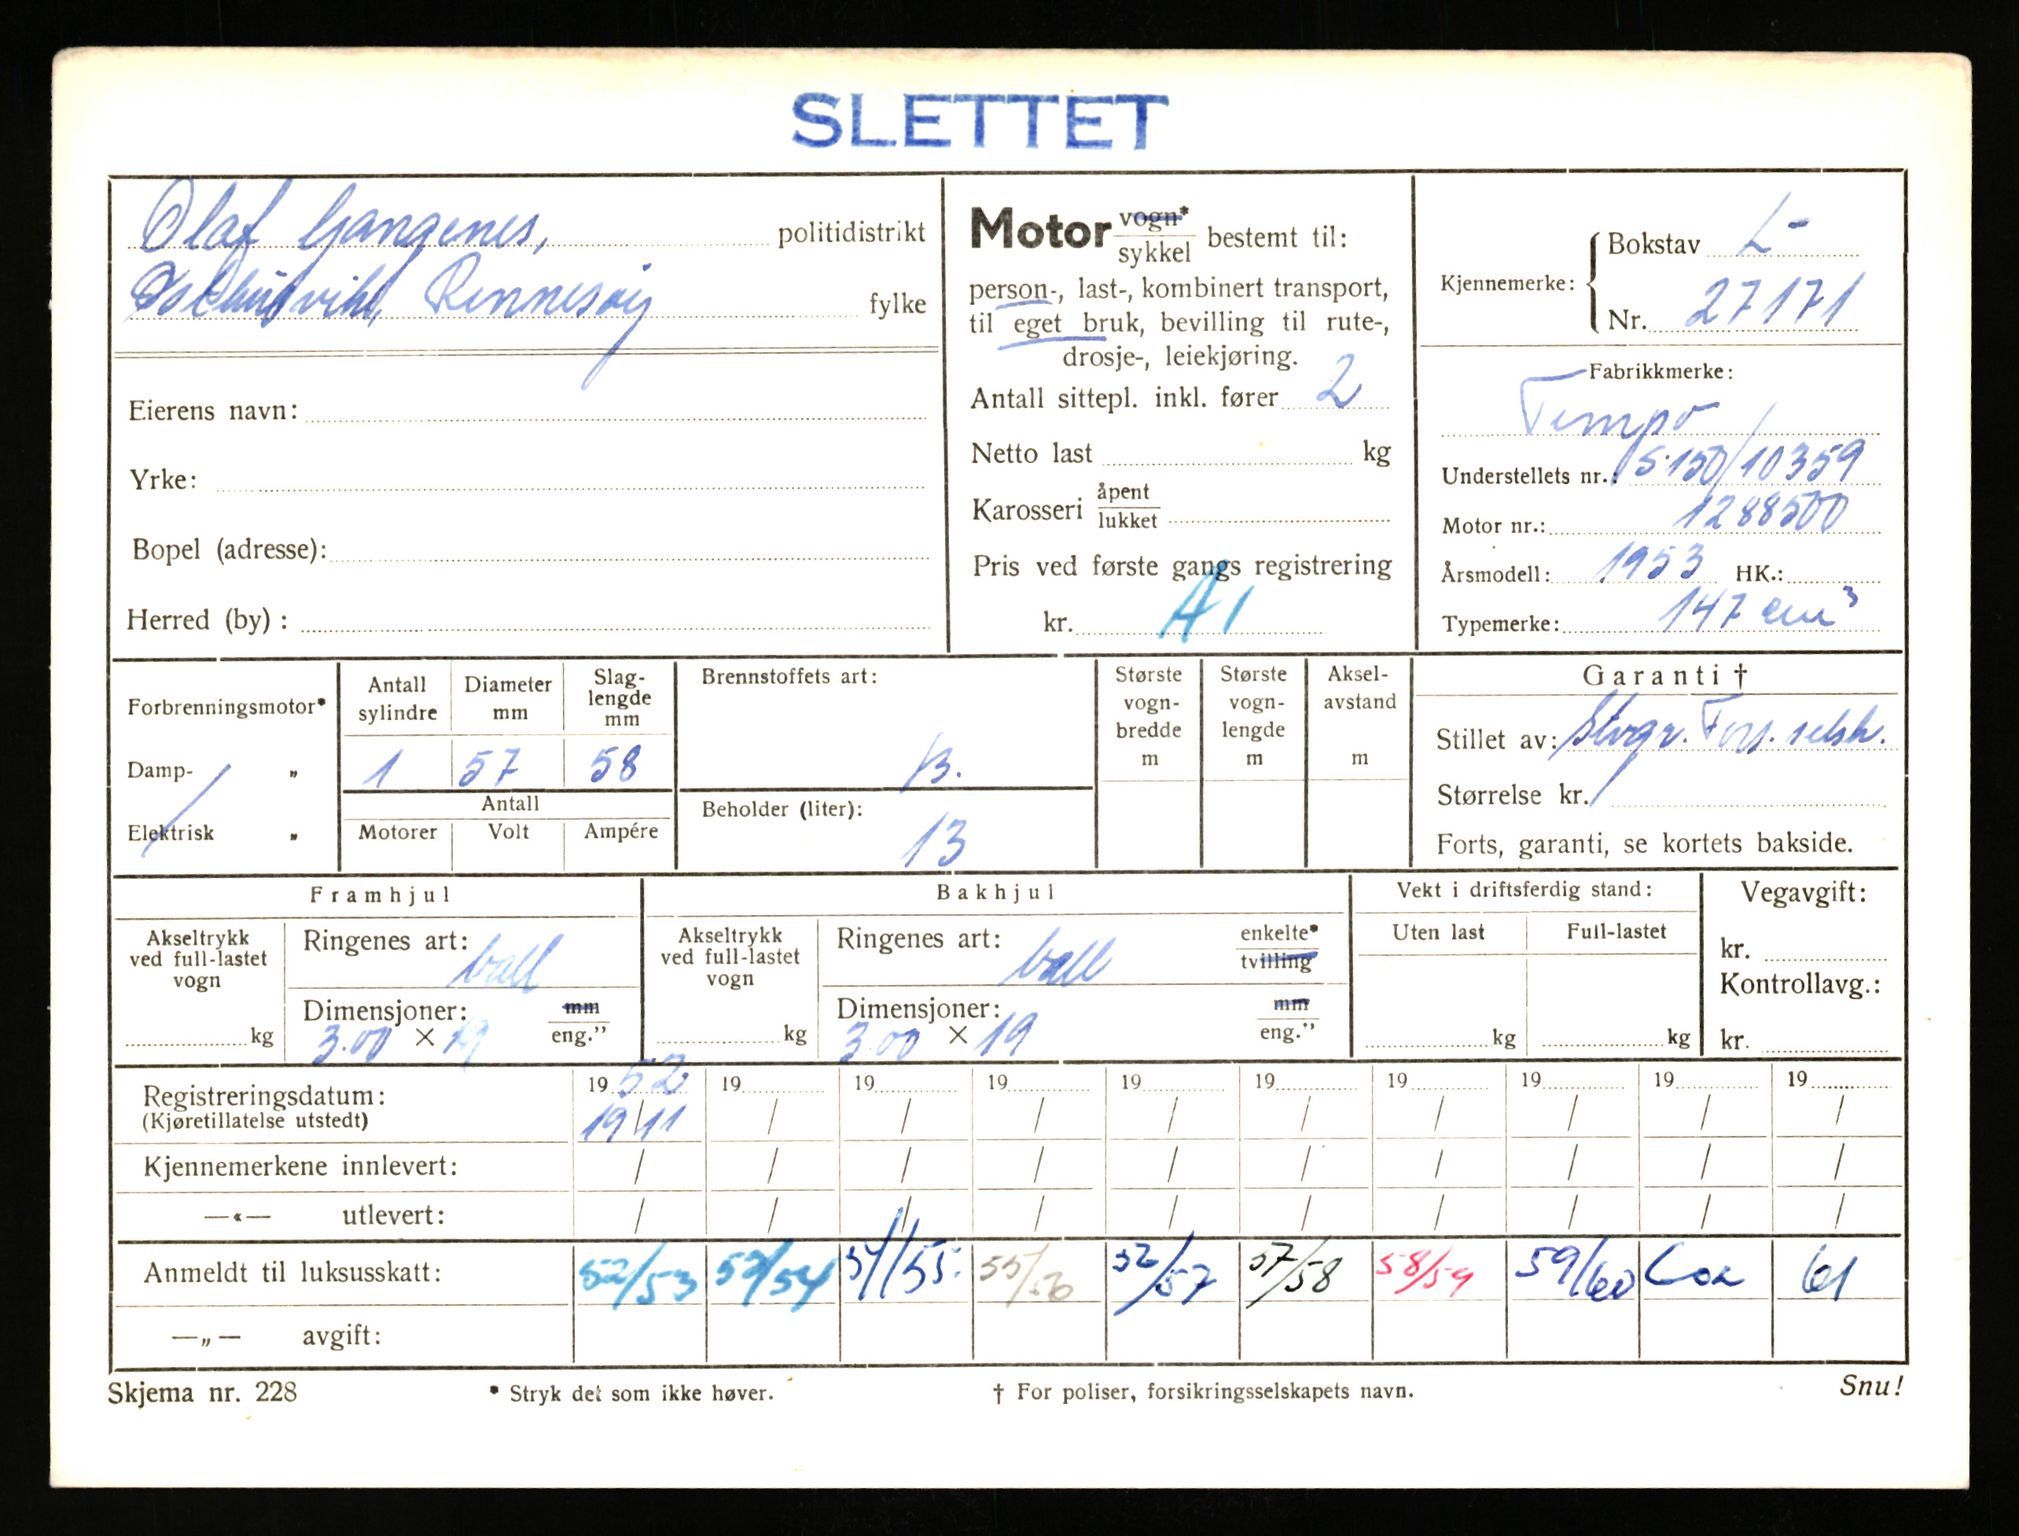 SLETTET
Olaf Gangenes, politidistrikt
vik, Rennesøy fylke
Eierens navn:
Yrke:
Bopel (adresse):
Herred (by) :
Motor vogn*
sykkel bestemt til:
person-, last-, kombinert transport,
til eget bruk, bevilling til rute-,
drosje-, leiekjøring.
Antall sittepl. inkl. fører 2
Netto last kg
Karosseri åpent
lukket
Pris ved første gangs registrering
kr. A1
Kjennemerke: Bokstav L-
Nr. 27171
Fabrikkmerke:
Tempo
Understellets nr.: S.150/10359
Motor nr.: 1288500
Årsmodell: 1953 HK.:
Typemerke: 147 cm³
Forbrenningsmotor*
Damp- „
Elektrisk „
Antall sylindre
Diameter mm
Slag-lengde mm
1 57 58
Antall
Motorer Volt Ampére
Brennstoffets art:
B.
Beholder (liter):
13
Største vogn-bredde m
Største vogn-lengde m
Aksel-avstand m
Garanti †
Stillet av: Stvgr. Fors. selsk.
Størrelse kr.
Forts, garanti, se kortets bakside.
Framhjul
Akseltrykk
ved full-lastet
vogn
kg
Ringenes art: ball
Dimensjoner: mm
3.00 × 19 eng.”
Bakhjul
Akseltrykk
ved full-lastet
vogn
kg
Ringenes art: ball enkelte*
tvilling
Dimensjoner: mm
3.00 × 19 eng.”
Vekt i driftsferdig stand:
Uten last Full-lastet
kg kg
Vegavgift:
kr.
Kontrollavg.:
kr.
Registreringsdatum: 19 52 19 19 19 19 19 19 19 19 19
(Kjøretillatelse utstedt) 19/11 / / / / / / / / /
Kjennemerkene innlevert: / / / / / / / / / /
—«— utlevert: / / / / / / / / / /
Anmeldt til luksusskatt: 52/53 53/54 54/55. 55/56 /57 57/58 58/59 59/60 61
—„— avgift:
Skjema nr. 228 * Stryk det som ikke høver. † For poliser, forsikringsselskapets navn. Snu!